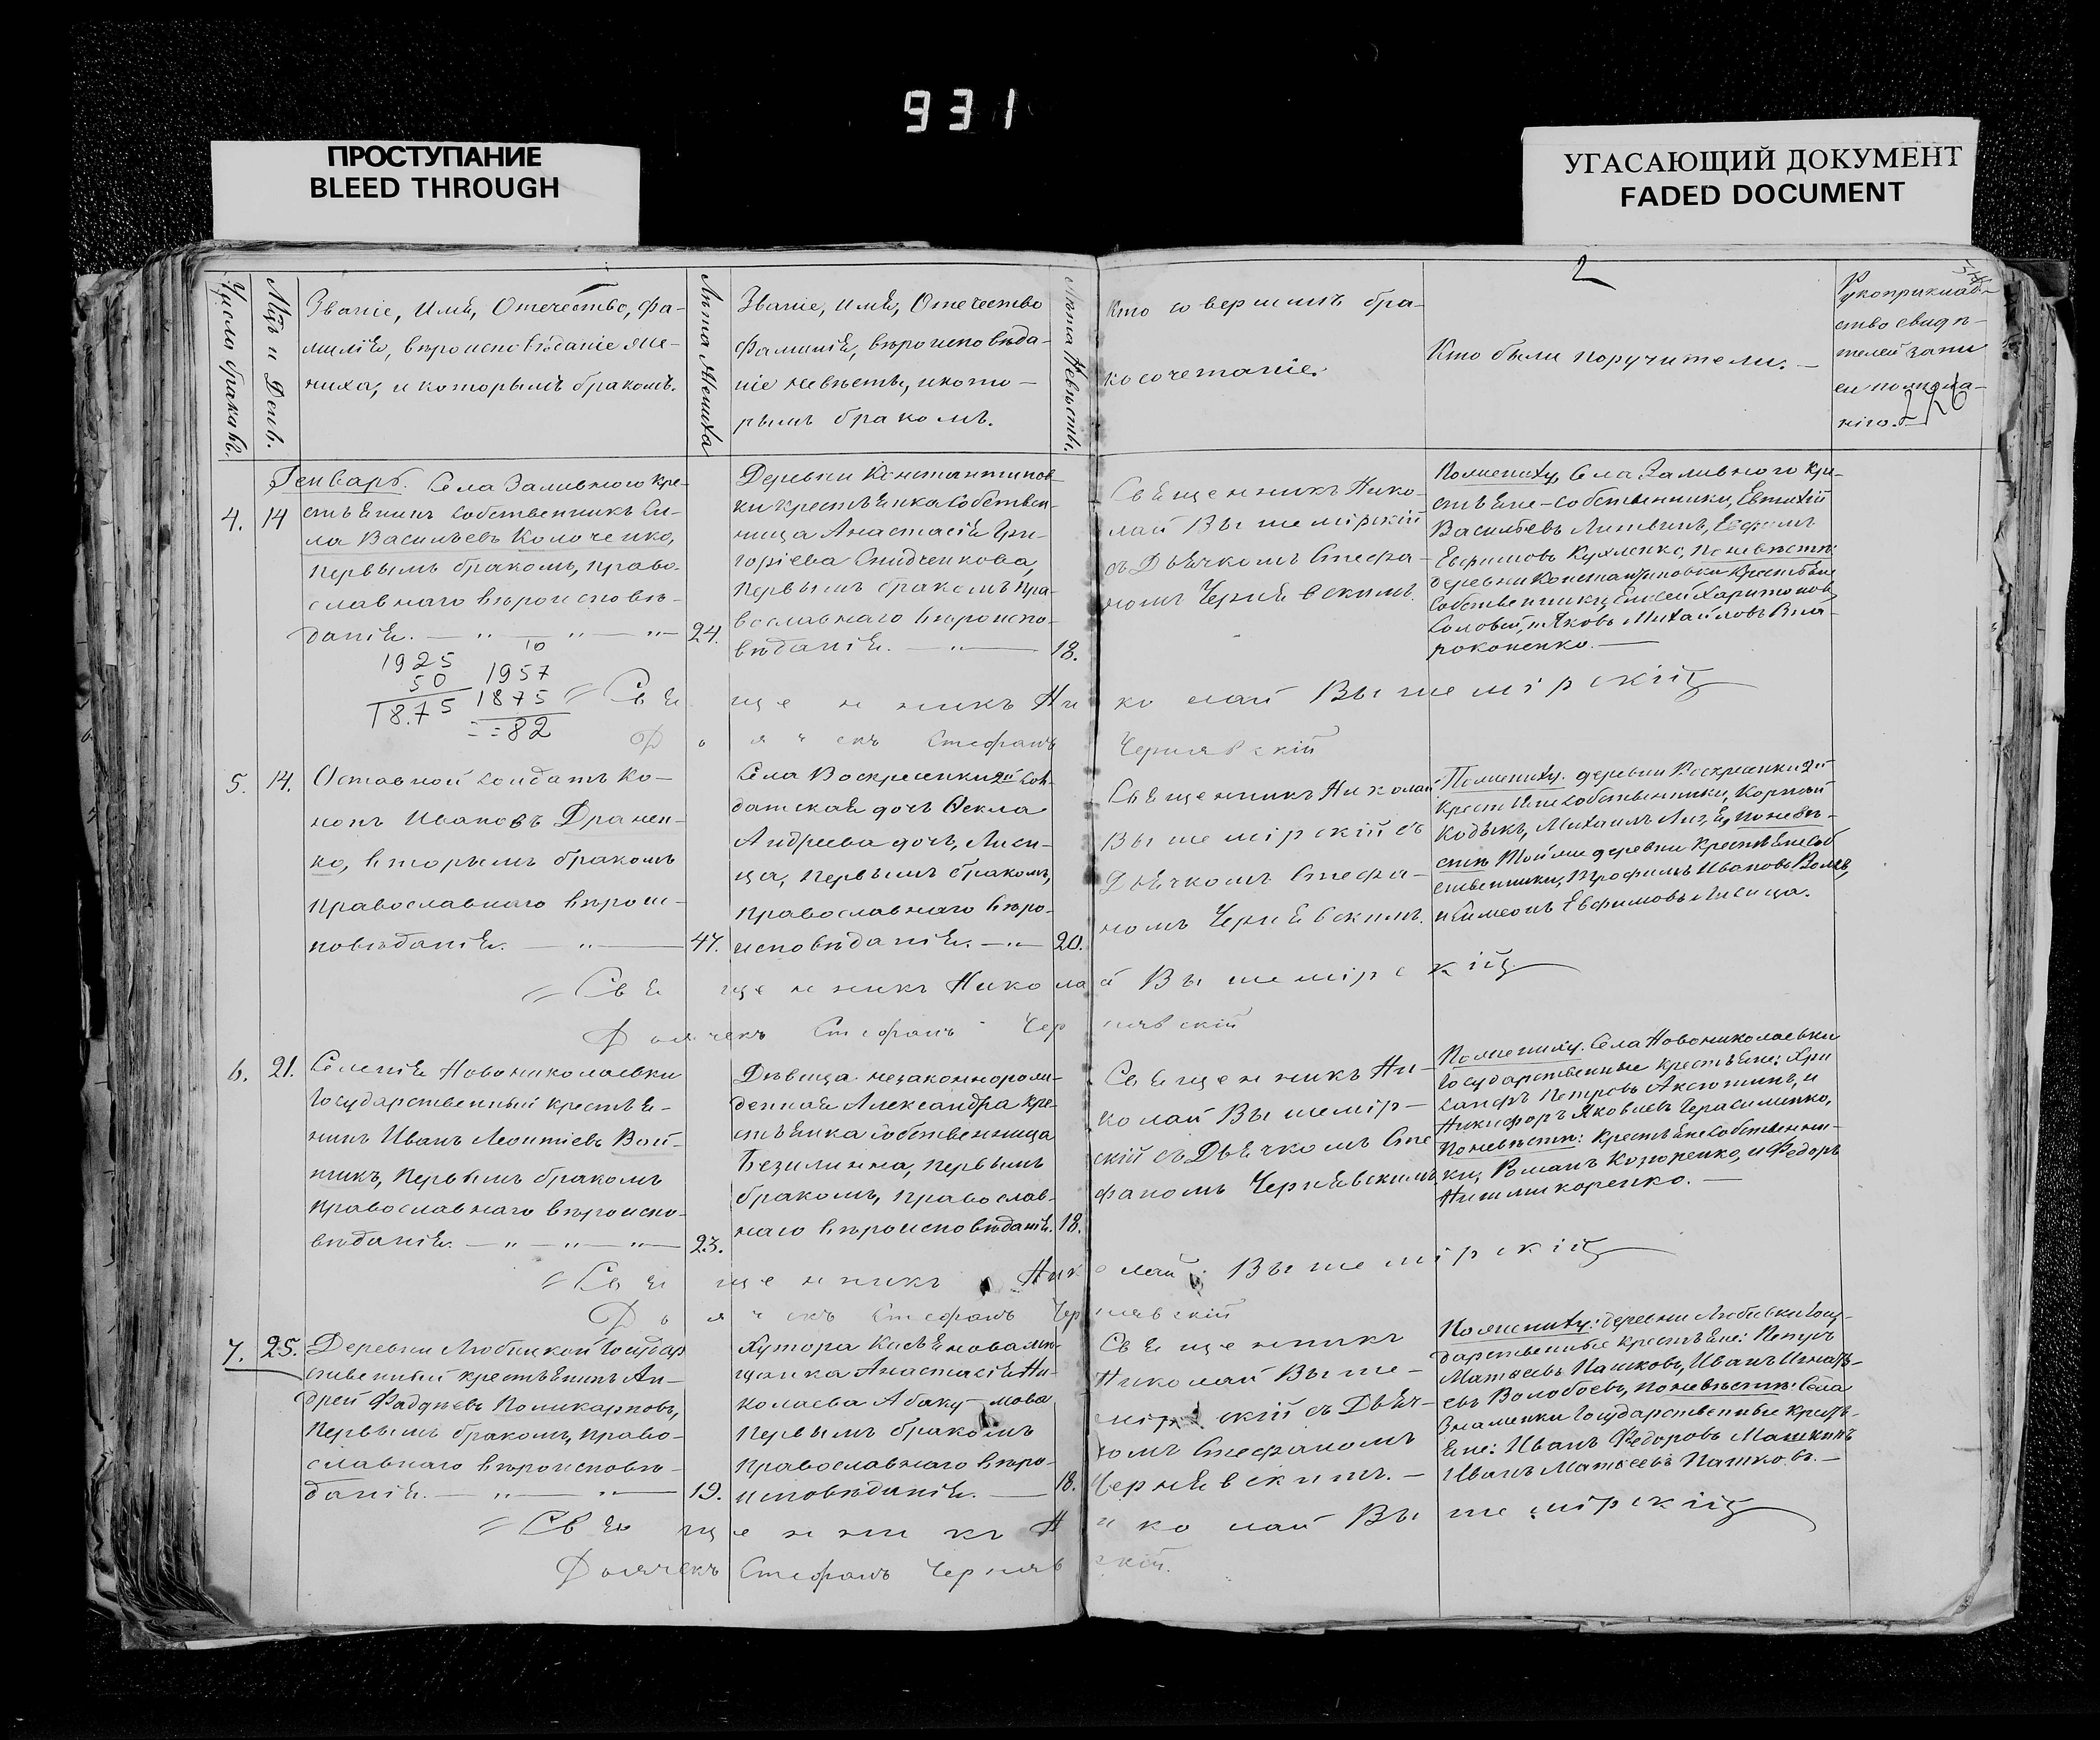 931
ПРОСТУПАНИЕ
BLEED THROUGH
УГАСАЮЩИЙ ДОКУМЕНТ
FADED DOCUMENT
Число браковъ.
Мѣц и День.
Званіе, Имя, Отечество, фа-
милія, вѣроисповѣданіе же-
ниха, и которымъ бракомъ.
Лѣта Жениха
Званіе, имя, Отечество
Фамилія, вѣроисповѣда-
ніе невѣсты, и кото-
рымъ бракомъ.
Лѣта Невѣсты.
Кто совершилъ бра-
косочетаніе.
2
Кто были поручители. —
Рукоприклад-
ство свидѣ-
телей запи
си по жела-
нію.
Генварь. Села Заливного кре-
4. 14 стьянинъ собственникъ Си-
ла Васильевъ Колоченко,
первымъ бракомъ, право-
славнаго вѣроисповѣ-
данія. — „ — „ — „ 24.
Деревни Константинов-
ки крестьянка собствен-
ница Анастасія Гри-
горіева Снидченкова,
первымъ бракомъ пра-
вославнаго вѣроиспо-
вѣданія. — „ — 18.
Священникъ Нико-
лай Вышемірскій
съ Дьячкомъ Стефа-
номъ Чернявскимъ.
По жениху, Села Заливного кре-
стьяне-собственники, Евтихій
Васильевъ Литвинъ, Ефимъ
Евфимовъ Кухленко, по невѣстѣ:
деревни Константиновки крестьяне
собственники, Елисей Харитоновъ
Соловей, и Яковъ Михайловъ Вла-
роконенко. —
10
1925
50
18.75
1957
1875
= = 82
Священникъ Николай Вышемірскій
Дьячекъ Стефанъ Чернявскій
5. 14. Отставной солдатъ Ко-
нонъ Ивановъ Дранен-
ко, вторымъ бракомъ
православнаго вѣроис-
повѣданія. — „ — 47.
Села Воскресенки 2й сол-
датская дочь Ѳекла
Андреева дочь, Лиси-
ца, первымъ бракомъ,
православнаго вѣро-
исповѣданія. — „ — 20.
Священникъ Николай
Вышемірскій съ
Дьячкомъ Стефа-
номъ Чернявскимъ.
По жениху. деревни Воскресенки 2й
крестьяне собственники, Корней
Кодыкъ, Михаилъ по невѣ-
стѣ той же деревни крестьяне соб
ственники, Трофимъ Ивановъ Волкъ,
и Симеонъ Евфимовъ Лисица.
Священникъ Николай Вышемірскій
Дьячекъ Стефанъ Чернявскій
6. 21. Селенія Новониколаевки
Государственный крестья-
нинъ Иванъ Леонтіевъ Вой-
тикъ, первымъ бракомъ
православнаго вѣроиспо-
вѣданія. — „ — „ — „ — 23.
Дѣвица незаконнорож-
денная Александра кре-
стьянка собственница
Безилинна, первымъ
бракомъ, православ-
наго вѣроисповѣданія. 18.
Священникъ Ни-
колай Вышемір-
скій съ Дьячкомъ Сте
фаномъ Чернявскимъ
По жениху. Села Новониколаевки
Государственные крестьяне: Хри
санфъ Петровъ Аксютинъ, и
Никифоръ Яковлевъ Герасименко,
По невѣстѣ: крестьяне собственни-
ки, Романъ Корженко, и Федоръ
Нишпикоренко. —
Священникъ Николай Вышемірскій
Дьячекъ Стефанъ Чернявскій
7. 25. Деревни Любицкой Государ
ственный крестьянинъ Ан-
дрей Фаддѣевъ Поликарповъ,
первымъ бракомъ, право-
славнаго вѣроисповѣ-
данія. — „ — „ — 19.
Хутора мѣ-
щанка Анастасія Ни-
колаева Абакумова
первымъ бракомъ
православнаго вѣро-
исповѣданія. — 18.
Священникъ
Николай Выше-
мірскій съ Дьяч-
комъ Стефаномъ
Чернявскимъ. —
По жениху: деревни Любицки Госу-
дарственные крестьяне: Петръ
Матѳеевъ Пашковъ, Иванъ Игнать-
евъ Волобоевъ, по невѣстѣ: Села
Знаменки Государственные кресть-
яне: Иванъ Федоровъ Машкинъ
Иванъ Матѳеевъ Пашковъ. —
Священникъ Николай Вышемірскій
Дьячекъ Стефанъ Чернявскій.